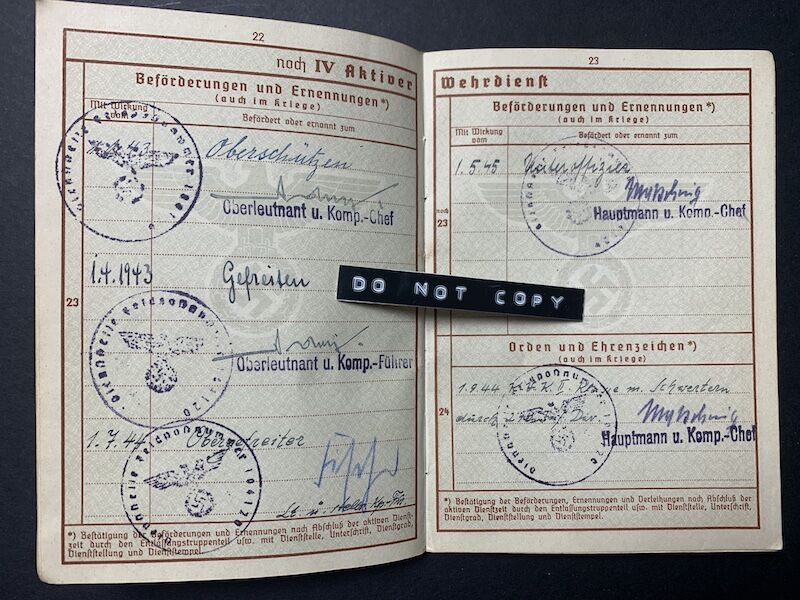 22
noch IV Aktiver
Beförderungen und Ernennungen*)
(auch im Kriege)
Mit Wirkung vom
Befördert oder ernannt zum
43
Oberschützen
Oberleutnant u. Komp.-Chef
1.4.1943 Gefreiten
23
Oberleutnant u. Komp.-Führer
1.7.44 Obergefreiter
Dienststelle Feldpostnummer
*) Bestätigung der Beförderungen und Ernennungen nach Abschluß der aktiven Dienst-
zeit durch den Entlassungstruppenteil usw. mit Dienststelle, Unterschrift, Dienstgrad,
Dienststellung und Dienststempel.
23
Wehrdienst
Beförderungen und Ernennungen*)
(auch im Kriege)
Mit Wirkung vom
Befördert oder ernannt zum
1.5.45 Unteroffizier
noch
23
Hauptmann u. Komp.-Chef
DO NOT COPY
Orden und Ehrenzeichen*)
(auch im Kriege)
1.9.44 K.V.K. II. Klasse m. Schwertern
24
durch
Hauptmann u. Komp.-Chef
*) Bestätigung der Beförderungen, Ernennungen und Verleihungen nach Abschluß der
aktiven Dienstzeit durch den Entlassungstruppenteil usw. mit Dienststelle, Unterschrift,
Dienstgrad, Dienststellung und Dienststempel.